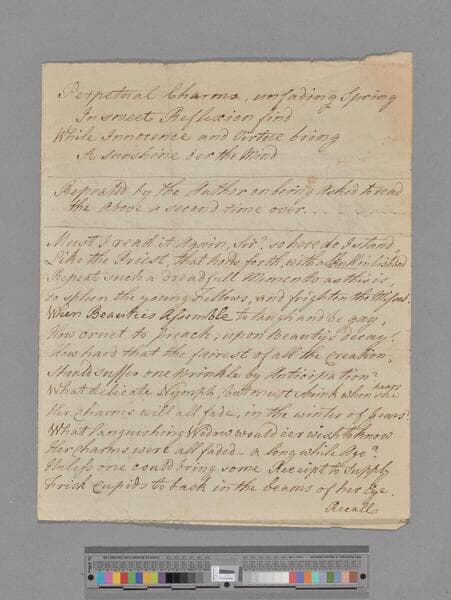 Perpetual Charms, unfading Spring
In sweet Reflexion find
While Innocence and Virtue bring
A sunshine o'er the Mind
Repeated by the Author on being asked to read
the above a second time over. . .
Must I read it Again, Sir? so here do I stand,
Like the Priest, that holds forth, with a Skull in his hand
Repeat such a dreadfull Memento as this is,
To spleen the young Fellows, and frighten the Misses.
When Beauties Assemble to laugh and be gay,
How cruel to preach, upon Beauty's decay!
How hard that the fairest of all the Creation,
Should suffer one Wrinkle by Anticipation?
What delicate Nymph, but must shrink when she hears
Her Charms will all fade, in the winter of years?
What languishing Widow would e'er wish to know
Her charms were all faded - a long while Ago?
Unless one could bring some Receipt to Supply
Brisk Cupids to bask in the beams of her Eye.
Recall